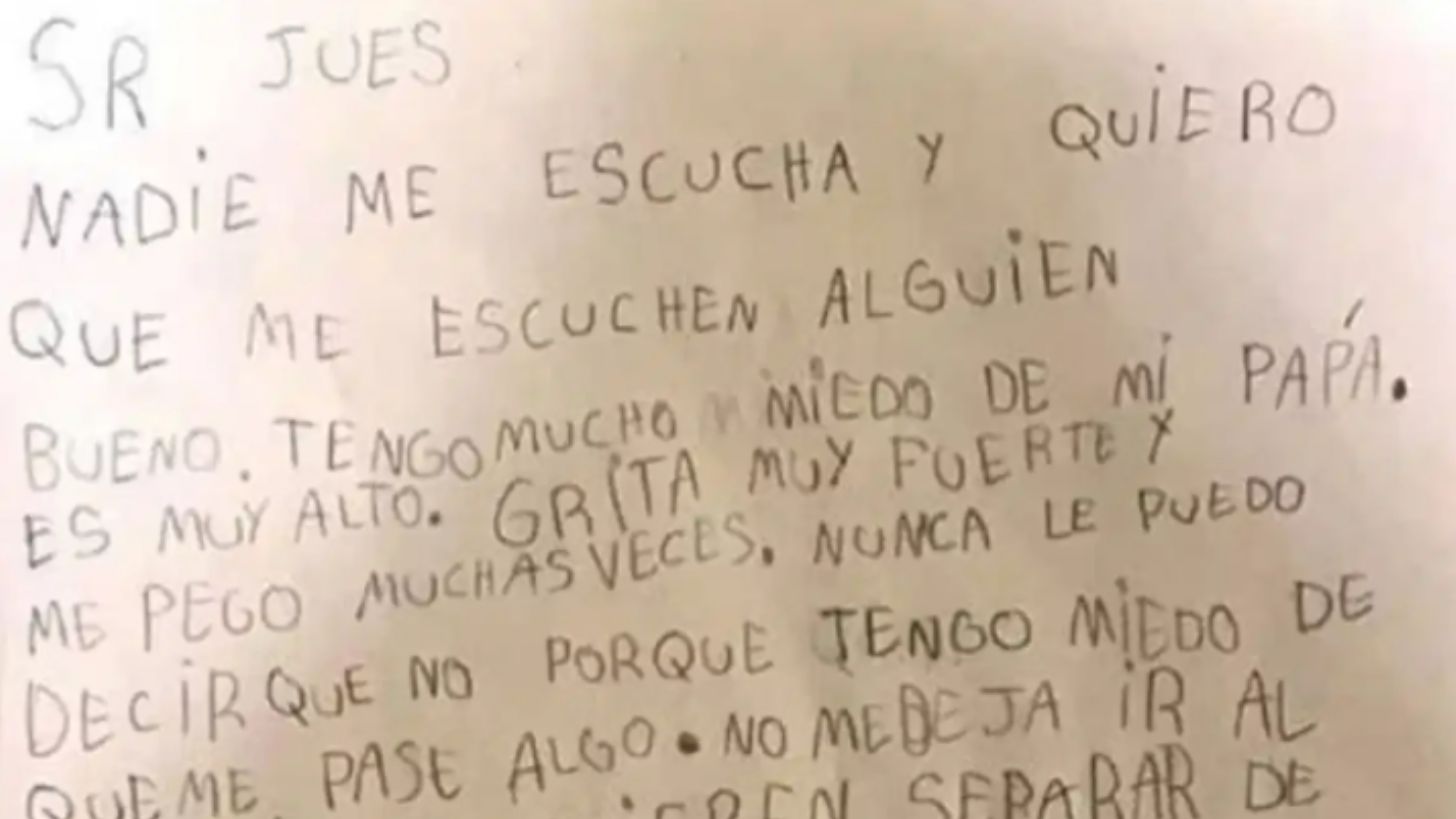 SR JUES
NADIE ME ESCUCHA Y QUIERO
QUE ME ESCUCHEN ALGUIEN
BUENO. TENGO MUCHO MIEDO DE MI PAPÁ.
ES MUY ALTO. GRITA MUY FUERTE Y
ME PEGO MUCHAS VECES. NUNCA LE PUEDO
DECIR QUE NO PORQUE TENGO MIEDO DE
QUE ME PASE ALGO. NO ME DEJA IR AL
SEPARAR DE